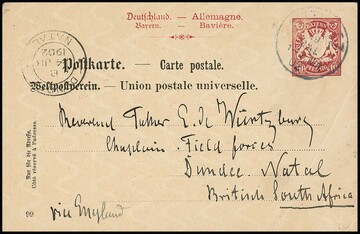 Deutschland. — Allemagne.
Bayern. — Bavière.
NATAL
1902
Postkarte. — Carte postale.
Weltpostverein. — Union postale universelle.
Reverend Father E. de Wurtzburg
Chaplain. Field forces
Dundee. Natal
British South Africa
via England
Nur für die Adresse.
Côté réservé à l'adresse.
99